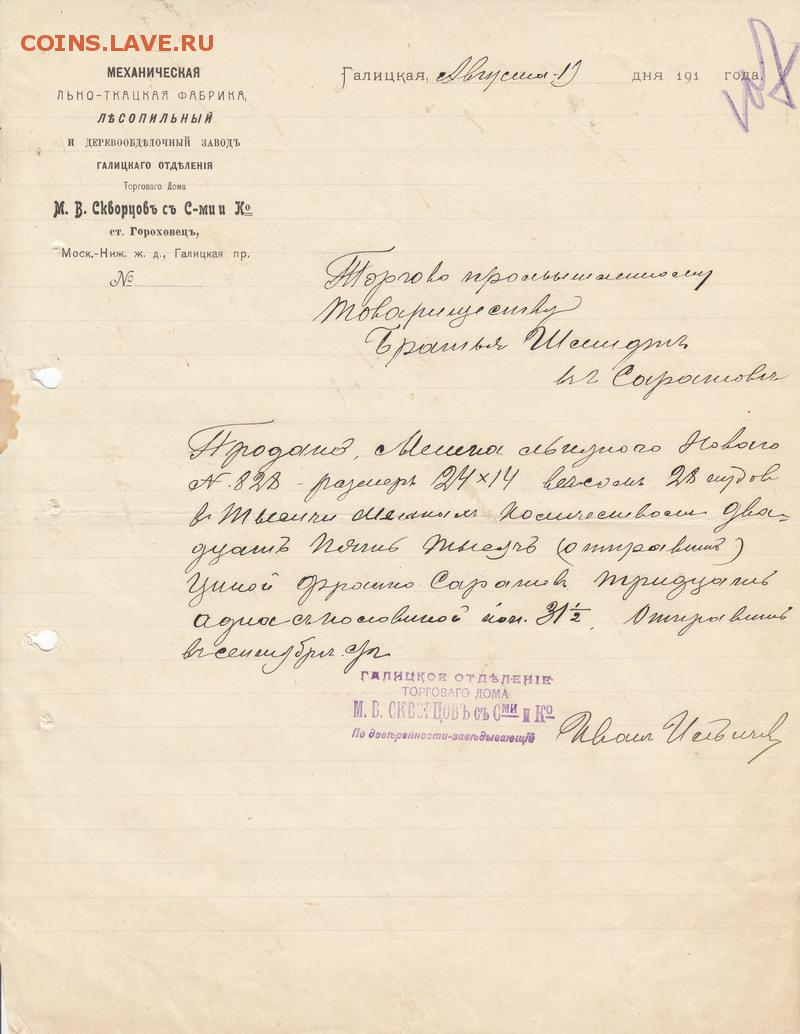 COINS.LAVE.RU
МЕХАНИЧЕСКАЯ
ЛЬНО-ТКАЦКАЯ ФАБРИКА,
ЛѢСОПИЛЬНЫЙ
И ДЕРЕВООБДѢЛОЧНЫЙ ЗАВОДЪ
ГАЛИЦКАГО ОТДѢЛЕНІЯ
Торговаго Дома
М. В. Скворцовъ съ С-ми и Ко
ст. Гороховецъ,
Моск.-Ниж. ж. д., Галицкая пр.
№
Галицкая, Августа 19 дня 191 года.
Торгово промышленному
Товариществу
Братья Шмидтъ
въ Саратовъ
Продано, Мешка льнаго Новаго
N. 828 - размеръ 24×14 весомъ 28 пудов
в Тысячи количеством два-
дцать Пять тысячъ (отправить)
Ценой франко Саратов тридцать
адна съ половиной коп. 31½. Отправить
въ сентябрь
ГАЛИЦКОЕ ОТДѢЛЕНІЕ
ТОРГОВАГО ДОМА
М. В. СКВОРЦОВЪ съ Сми и Ко
По довѣренности-завѣдывающій Иван